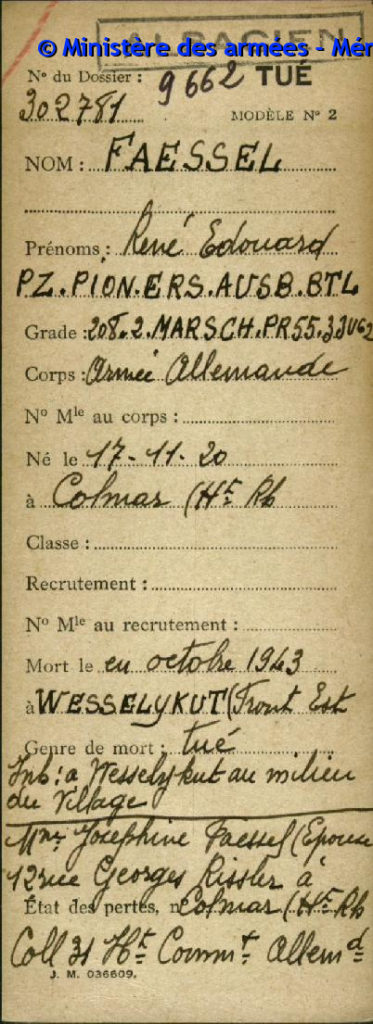 ALSACIEN
© Ministère des armées - Mém
N° du Dossier : 9662 TUÉ
302781
MODÈLE N° 2
NOM : FAESSEL
Prénoms : René Edouard
PZ.PION.ERS.AUSB.BTL
Grade : 208.2.MARSCH.PR55.33062
Corps : Armée Allemande
N° Mle au corps :
Né le 17-11-20
à Colmar (Ht Rh
Classe :
Recrutement :
N° Mle au recrutement :
Mort le en octobre 1943
à WESSELYKUT (Front Est
Genre de mort : tué
Inh: a Wesselykut au milieu
du Village
Mme Joséphine Faessel (Epouse
12 rue Georges Rissler à
État des pertes, n Colmar (Ht Rh
Coll 31 Ht Commt Allemd
J. M. 036609.